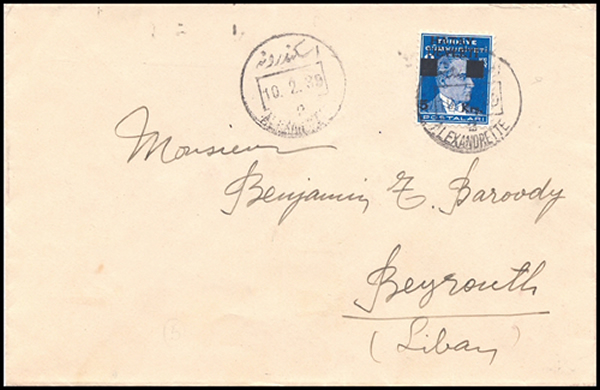 اسكندرونه
10. 2. 39
TÜRKİYE
CÜMHURİYETİ
POSTALARI
ALEXANDRETTE
Monsieur
Benjamin T. Baroody
Beyrouth
(Liban)